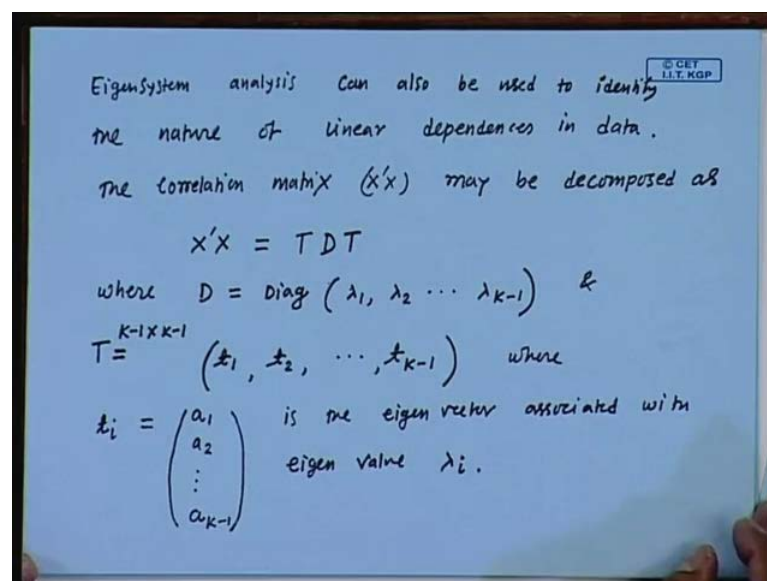 © CET
I.I.T. KGP
Eigensystem analysis can also be used to identify
the nature of linear dependences in data.
The correlation matrix (x'x) may be decomposed as
x'x = T D T
where D = Diag (λ1, λ2 ⋯ λK-1) &
T^{K-1×K-1} = (t1, t2, ⋯, tK-1) where
ti = (a1 a2 ⋮ aK-1) is the eigen vector associated with
eigen value λi.